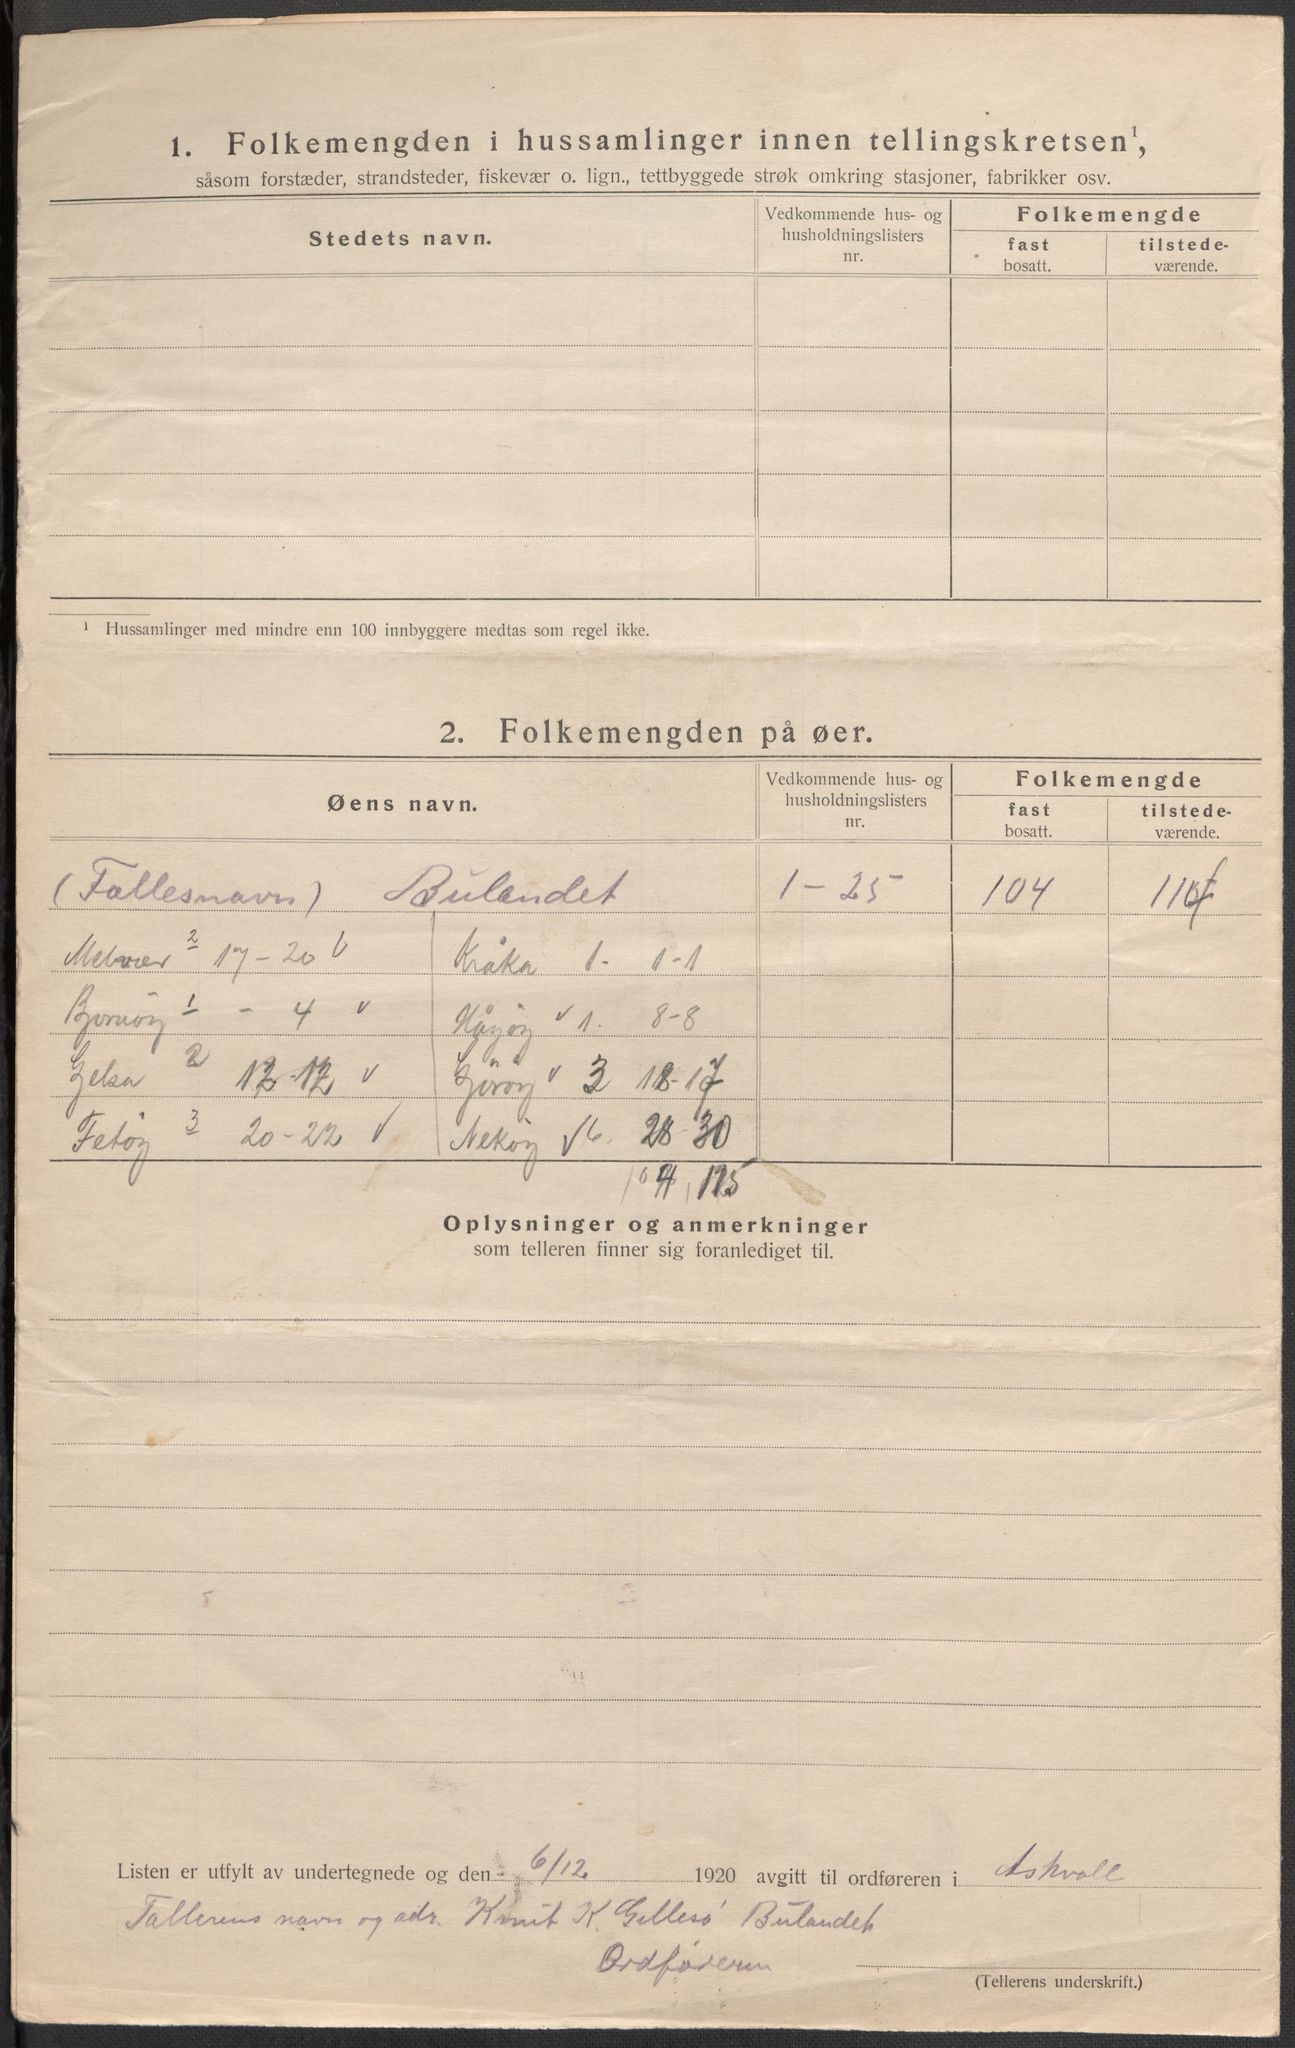 1. Folkemengden i hussamlinger innen tellingskretsen¹,
såsom forstæder, strandsteder, fiskevær o. lign., tettbyggede strøk omkring stasjoner, fabrikker osv.
Stedets navn.
Vedkommende hus- og
husholdningslisters
nr.
Folkemengde
fast
bosatt.
tilstede-
værende.
¹ Hussamlinger med mindre enn 100 innbyggere medtas som regel ikke.
2. Folkemengden på øer.
Øens navn.
Vedkommende hus- og
husholdningslisters
nr.
Folkemengde
fast
bosatt.
tilstede-
værende.
(Fallesnavn) Bulandet 1 - 25 104
Melvær 2 17 - 20 Kråka 1 - 1-1
1 - 4 v v 1. 8-8
Gelsa 2 12-12 v v 3 18-17
Fetöy 3 20-22 v Neköy v 6. 28-30
104 115
Oplysninger og anmerkninger
som telleren finner sig foranlediget til.
Listen er utfylt av undertegnede og den 6/12 1920 avgitt til ordføreren i Askvoll
Tallerens navn og adr. Knut K. Gellesö Bulandet
Ordføreren
(Tellerens underskrift.)